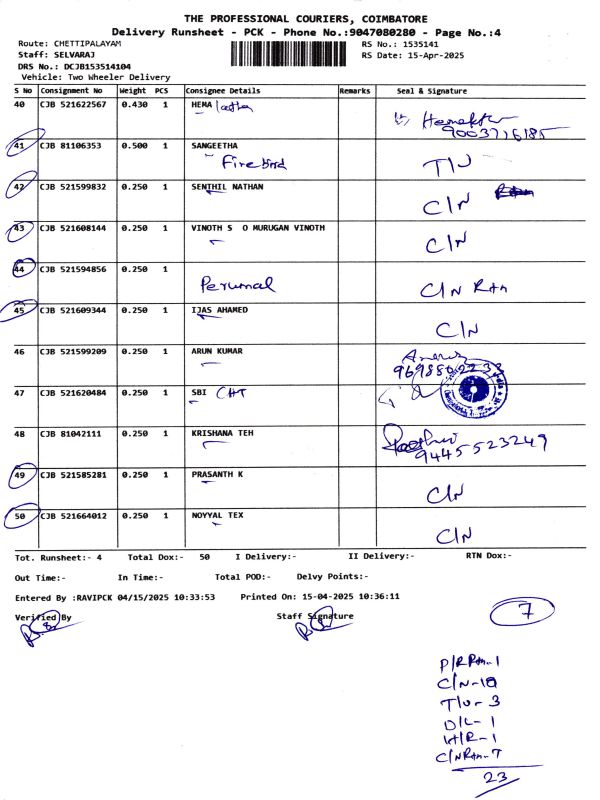 THE PROFESSIONAL COURIERS, COIMBATORE
Delivery Runsheet - PCK - Phone No.:9047080280 - Page No.:4
Route: CHETTIPALAYAM RS No.: 1535141
Staff: SELVARAJ RS Date: 15-Apr-2025
DRS No.: DCJB153514104
Vehicle: Two Wheeler Delivery
S No Consignment No Weight PCS Consignee Details Remarks Seal & Signature
40 CJB 521622567 0.430 1 HEMA latha
9003716185
41 CJB 81106353 0.500 1 SANGEETHA
Firebird T/U
42 CJB 521599832 0.250 1 SENTHIL NATHAN
C/N
43 CJB 521608144 0.250 1 VINOTH S O MURUGAN VINOTH
C/N
44 CJB 521594856 0.250 1
Perumal C/N Rtn
45 CJB 521609344 0.250 1 IJAS AHAMED
C/N
46 CJB 521599209 0.250 1 ARUN KUMAR
47 CJB 521620484 0.250 1 SBI CHT
48 CJB 81042111 0.250 1 KRISHANA TEH
9445523249
49 CJB 521585281 0.250 1 PRASANTH K
C/N
50 CJB 521664012 0.250 1 NOYYAL TEX
C/N
Tot. Runsheet:- 4 Total Dox:- 50 I Delivery:- II Delivery:- RTN Dox:-
Out Time:- In Time:- Total POD:- Delvy Points:-
Entered By :RAVIPCK 04/15/2025 10:33:53 Printed On: 15-04-2025 10:36:11
Verified By Staff Signature
7
P/R Rtn-1
C/N-10
T/U-3
D/L-1
H/R-1
C/N Rtn-7
23